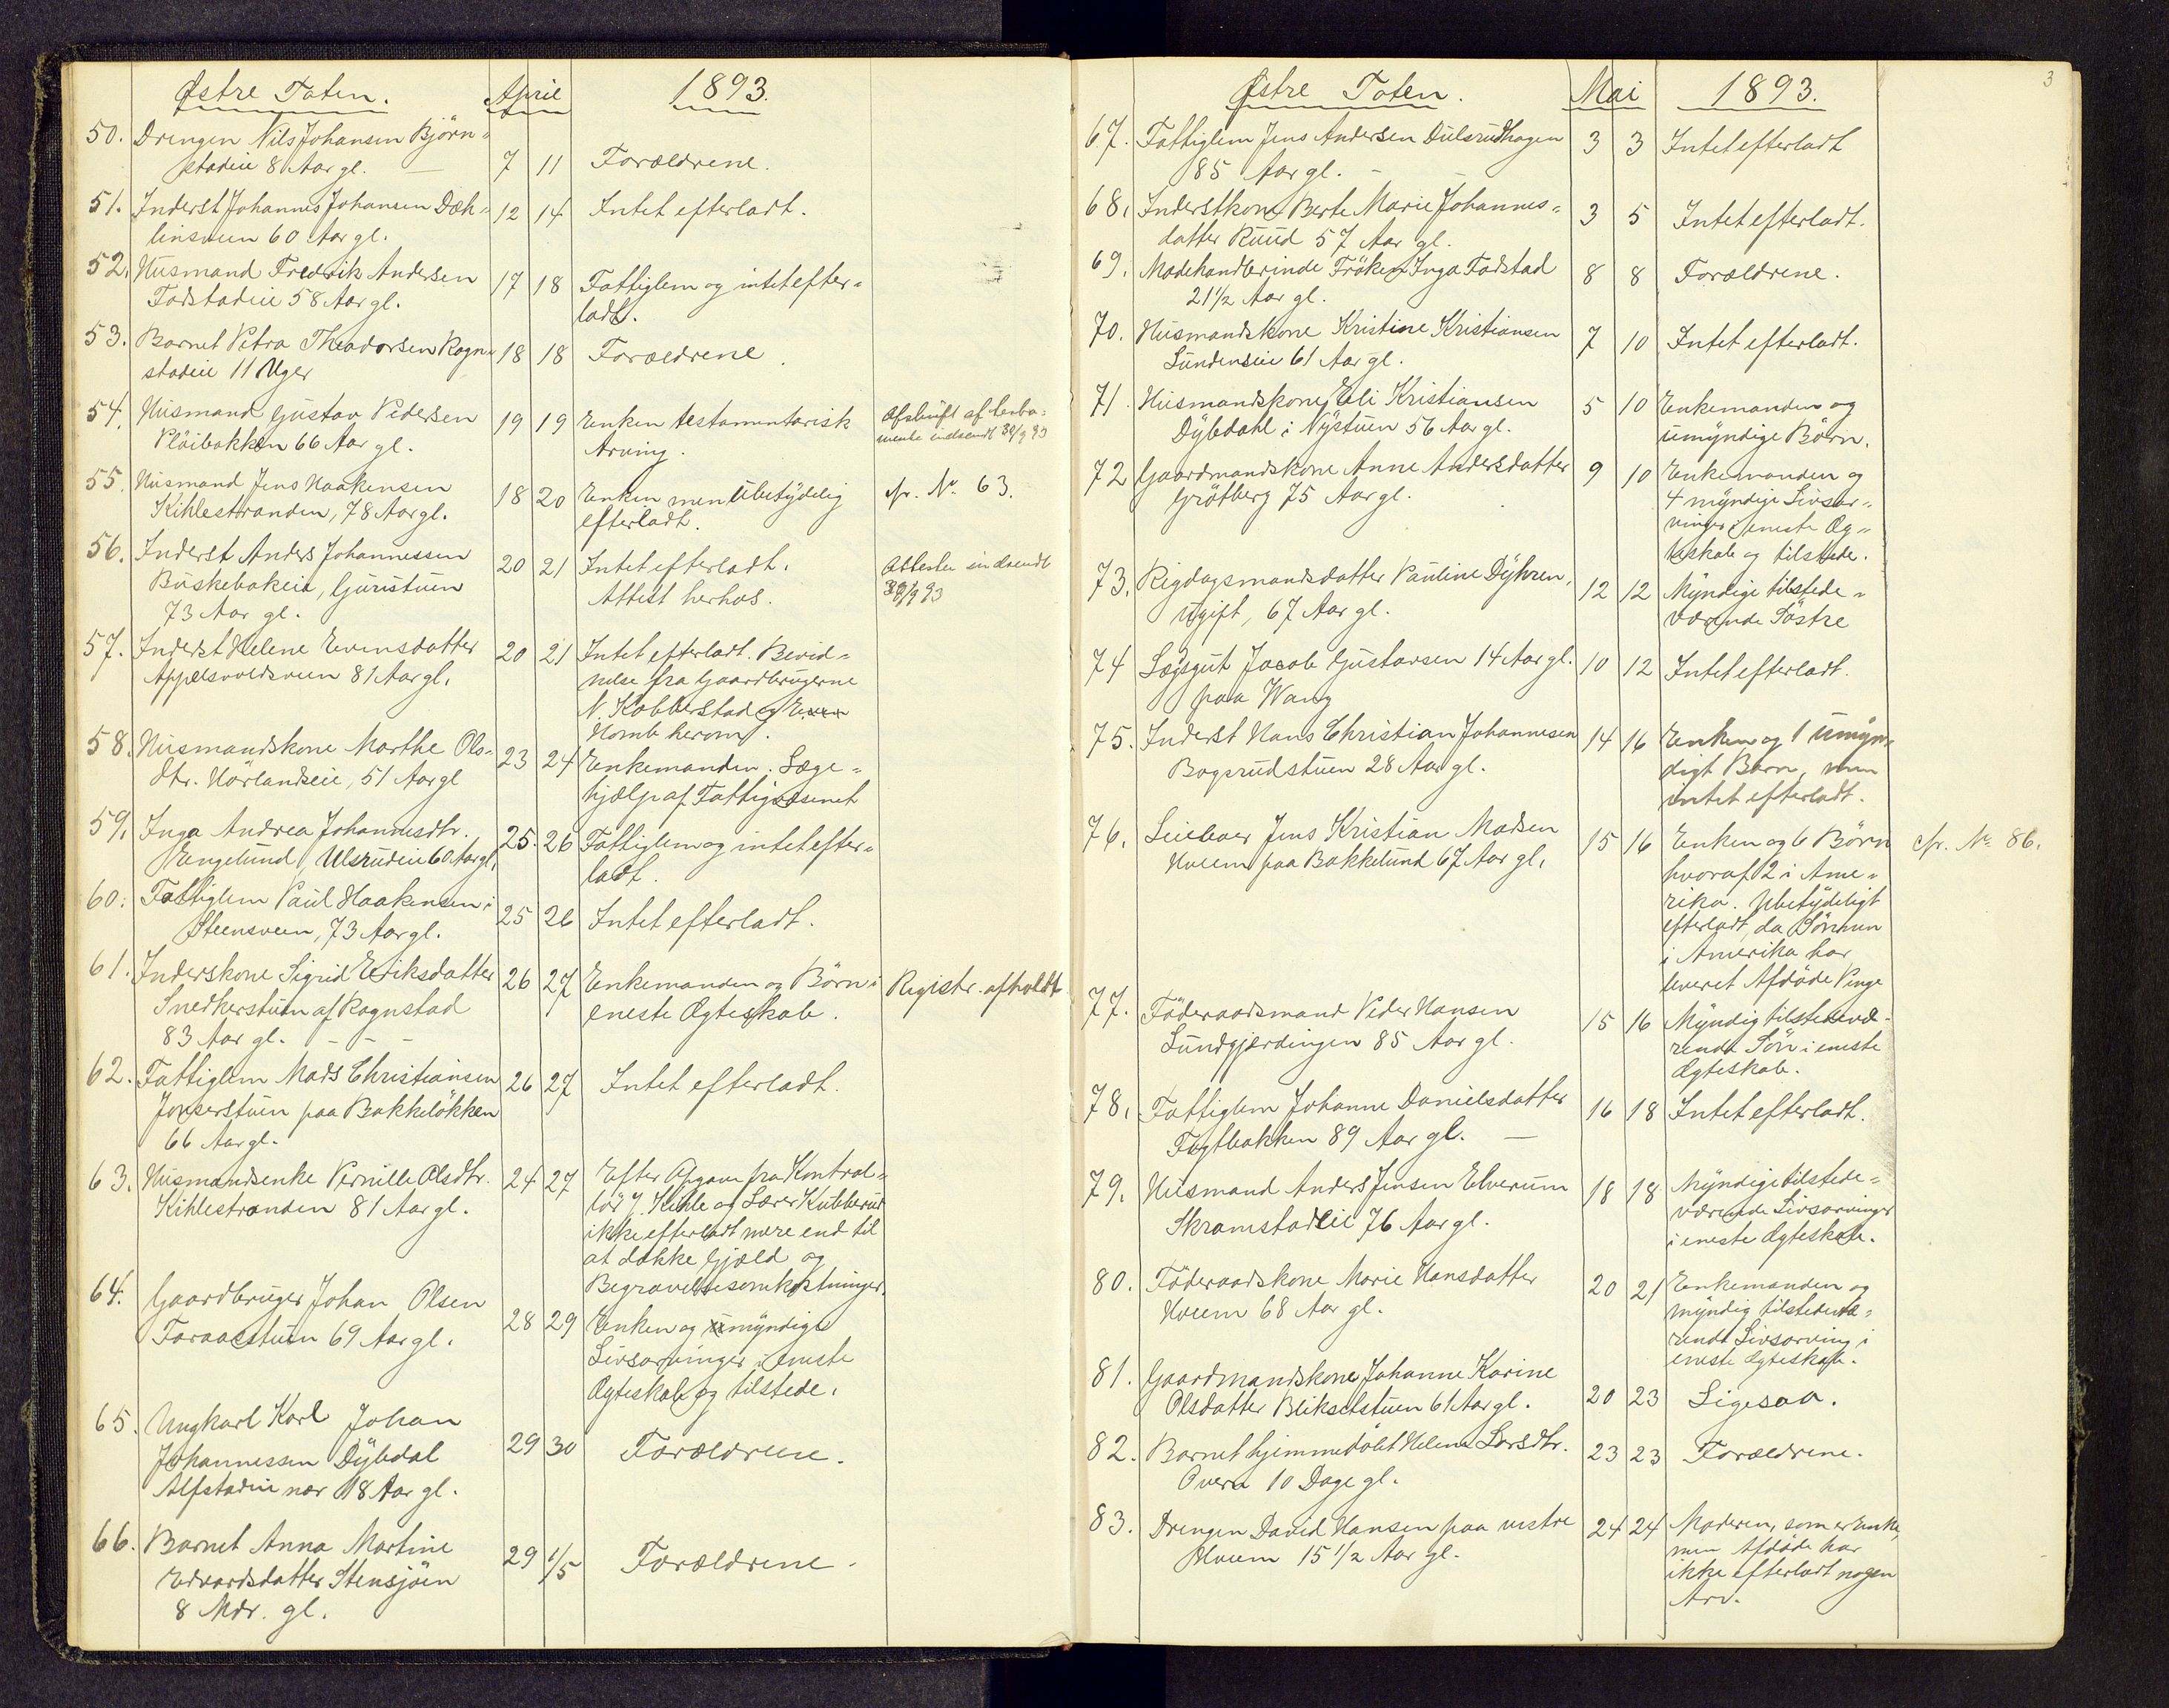 Østre Toten. April 1893.
50. Drengen Nils Johansen Björn-
stadeie 8 Aar gl. — 7 11 Forældrene.
51. Inderst Johannes Johansen Dæh- 12 14 Intet efterladt.
linsveen 60 Aar gl.
52. Husmand Fredrik Andersen 17 18 Fattiglem og intet efter-
Fodstadeie 58 Aar gl. ladt.
53. Barnet Petra Theodorsen Rogn- 18 18 Forældrene.
stadeie 11 Uger
54. Husmand Gustav Pedersen 19 19 Enken testamentarisk Afskrift af testa-
Plöibakken 66 Aar gl. Arving. mente indsendt 30/9 93
55. Husmand Jens Haakensen 18 20 Enken men ubetydelig cfr. No. 63.
Kihlestranden, 78 Aar gl. efterladt.
56. Inderst Anders Johannessen 20 21 Intet efterladt. Attesten indsendt
Buskebakeie, Guristuen Attest herhos. 30/9 93
73 Aar gl.
57. Inderst Helene Evensdatter 20 21 Intet efterladt. Bevid-
Appelsvoldsveen 81 Aar gl. nelse fra Gaardbrugerne
N. Kobberstad og Even
Homb herom.
58. Husmandskone Marthe Ols- 23 24 Enkemanden. Læge-
dtr. Hörlandseie, 51 Aar gl hjælp af Fattigvæsenet
59. Inga Andrea Johannesdtr. 25. 26 Fattiglem og intet efter-
Engelund, Ulsrudeie 60 Aar gl. ladt.
60. Fattiglem Paul Haakensen i 25 26 Intet efterladt.
Steensveen, 73 Aar gl.
61. Inderskone Sigrid Eriksdatter 26 27 Enkemanden og Börn i Registr. afholdt
Snedkerstuen af Rognstad eneste Ægteskab.
83 Aar gl. - - -
62. Fattiglem Mads Christiansen 26 27 Intet efterladt.
Jonserstuen paa Bakkelökken
66 Aar gl.
63. Husmandsenke Pernille Olsdtr. 24 27 Efter Opgave fra Kontrol-
Kihlestranden 81 Aar gl. lör J. Kihle og Lærer Kubberud
ikke efterladt mere end til
at dække Gjæld og
Begravelsesomkostninger.
64. Gaardbruger Johan Olsen 28 29 Enken og myndige
Faraastuen 69 Aar gl. Livsarvinger i eneste
Ægteskab og tilstede.
65. Ungkarl Karl Johan
Johannessen Dybdal 29 30 Forældrene.
Alfstadeie nær 18 Aar gl.
66. Barnet Anna Martine
Edvardsdatter Stensjöen 29 1/5 Forældrene.
8 Mdr. gl.
3
Østre Toten. Mai 1893.
67. Fattiglem Jens Andersen Dulsrudhagen 3 3 Intet efterladt
85 Aar gl. -
68. Inderstkone Berte Marie Johannes- 3 5 Intet efterladt.
datter Ruud 57 Aar gl.
69. Modehandlerinde Fröken Inga Fodstad 8 8 Forældrene.
21 1/2 Aar gl.
70. Husmandskone Kristine Kristiansen 7 10 Intet efterladt.
Lundenseie 61 Aar gl.
71. Husmandskone Eli Kristiansen 5 10 Enkemanden og
Dybdahl i Nystuen 56 Aar gl. umyndige Börn.
72 Gaardmandskone Anne Andersdatter 9 10 Enkemanden og
Grötberg 75 Aar gl. 4 myndige Livsar-
vinger i eneste Æg-
teskab og tilstede.
73. Rigdagsmandsdatter Pauline Dyhren, 12 12 Myndige tilstede-
ugift, 67 Aar gl. værende Söstre
74 Lægsgut Jacob Gustavsen 14 Aar gl. 10 12 Intet efterladt.
paa Wang
75. Inderst Hans Christian Johannesen 14 16 Enken og 1 umyn-
Bogsrudstuen 28 Aar gl. digt Barn, men
intet efterladt.
76. Leieboer Jens Kristian Madsen 15 16 Enken og 6 Börn cfr. No. 86.
Hveem paa Bakkelund 67 Aar gl. hvoraf 2 i Ame-
rika. Ubetydeligt
efterladt, da Sönnen
i Amerika har
leveret Afdöde Penge
77. Föderaadsmand Peder Hansen 15 16 Myndig tilstedevæ-
Lundgjærdingen 85 Aar gl. rende Sön i eneste
Ægteskab.
78. Fattiglem Johanne Danielsdatter 16 18 Intet efterladt.
Fogtbakken 89 Aar gl. —
79. Husmand Anders Jensen Elverum 18 18 Myndige tilstede-
Skramstadeie 76 Aar gl. værende Livsarvinger
i eneste Ægteskab.
80. Föderaadskone Marie Hansdatter 20 21 Enkemanden og
Hveem 68 Aar gl. myndig tilstedevæ-
rende Livsarving i
eneste Ægteskab.
81. Gaardmandskone Johanne Karine
Olsdatter Blikseltstuen 61 Aar gl. 20 23 Ligesaa.
82. Barnet hjemmedöbt Helene Larsdtr. 23 23 Forældrene.
Overn 10 Dage gl.
83. Drengen David Hansen paa vestre 24 24 Moderen, som er Enke,
Hveem 15 1/2 Aar gl. men Afdöde har
ikke efterladt nogen
Arv.